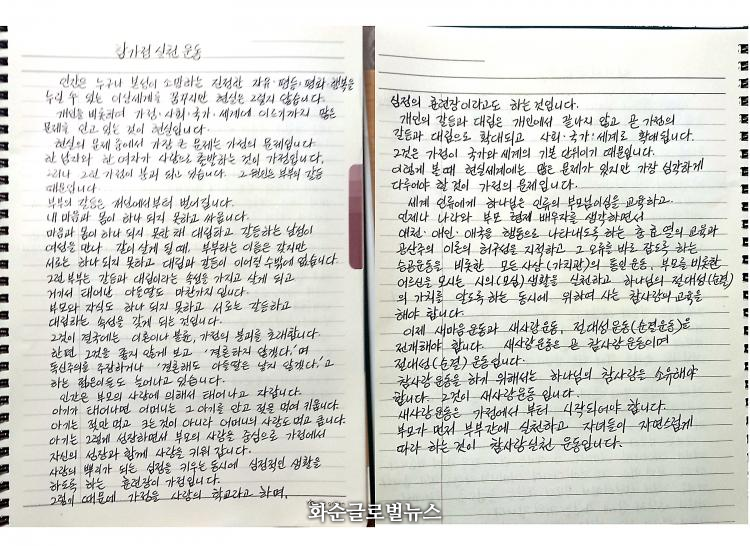 참가정 실천 운동
인간은 누구나 본심이 소망하는 진정한 자유·평등, 평화 행복을
누릴 수 있는 이상세계를 꿈꾸지만 현실은 그렇지 않습니다.
개인을 비롯하여 가정·사회·국가, 세계에 이르기까지 많은
문제를 안고 있는 것이 현실입니다.
현실의 문제 중에서 가장 큰 문제는 가정의 문제입니다.
한 남자와 한 여자가 사랑으로 출발하는 것이 가정입니다.
그러나 그런 가정이 붕괴 되고 있습니다. 그 원인은 부부의 갈등
때문입니다.
부부의 갈등은 개인에서부터 벌어집니다.
내 마음과 몸이 하나 되지 못하고 싸웁니다.
마음과 몸이 하나 되지 못한 채 대립하고 갈등하는 남성이
여성을 만나 같이 살게 될 때, 부부라는 이름은 갖지만
서로는 하나 되지 못하고 대립과 갈등이 이어질 수밖에 없습니다.
그런 부부는 갈등과 대립이라는 속성을 가지고 살게 되고
거기서 태어난 아들딸도 마찬가지 입니다.
부모와 자식도 하나 되지 못하고 서로는 갈등하고
대립하는 속성을 갖게 되는 것입니다.
그것이 결국에는 이혼이나 불륜, 가정의 붕괴를 초래합니다.
한편 그것을 좋지 않게 보고 '결혼하지 않겠다.'며
독신주의를 주장하거나 '결혼해도 아들딸은 낳지 않겠다.'고
하는 젊은이들도 늘어나고 있습니다.
인간은 부모의 사랑에 의해서 태어나고 자랍니다.
아기가 태어나면 어머니는 그 아기를 안고 젖을 먹여 키웁니다.
아기는 젖만 먹고 크는 것이 아니라 어머니의 사랑도 먹고 큽니다.
아기는 그렇게 성장하면서 부모의 사랑을 중심으로 가정에서
자신의 성장과 함께 사랑을 키워 갑니다.
사랑의 뿌리가 되는 심정을 키우는 동시에 심정적인 생활을
하도록 하는 훈련장이 가정입니다.
그렇기 때문에 가정을 사랑의 학교라고 하며,
심정의 훈련장이라고도 하는 것입니다.
개인의 갈등과 대립은 개인에서 끝나지 않고 곧 가정의
갈등과 대립으로 확대되고 사회·국가·세계로 확대됩니다.
그것은 가정이 국가와 세계의 기본 단위이기 때문입니다.
이렇게 볼 때 현실세계에는 많은 문제가 있지만 가장 심각하게
다루어야 할 것이 가정의 문제입니다.
세계 인류에게 하나님은 인류의 부모님이심을 교육하고,
언제나 나라와 부모 형제 배우자를 생각하면서
애천·애인·애국을 행동으로 나타내도록 하는 충효열의 교육과
공산주의 이론의 허구성을 지적하고 그 오류를 바로 잡도록 하는
승공운동을 비롯한 모든 사상(가치관)의 통일운동, 부모를 비롯한
어르신을 모시는 시의(모심)생활을 실천하고 하나님의 절대성(순결)
의 가치를 알도록 하는 동시에 위하여 사는 참사랑의 교육을
해야 합니다.
이제 새마음운동과 새사랑운동, 절대성운동(순결운동)을
전개해야 합니다. 새사랑운동은 곧 참사랑운동이며
절대성(순결) 운동입니다.
참사랑운동을 하기 위해서는 하나님의 참사랑을 소유해야
합니다. 그것이 새사랑운동 입니다.
새사랑운동은 가정에서 부터 시작되어야 합니다.
부모가 먼저 부부간에 실천하고 자녀들이 자연스럽게
따라 하는 것이 참사랑실천 운동입니다.
화순글로벌뉴스